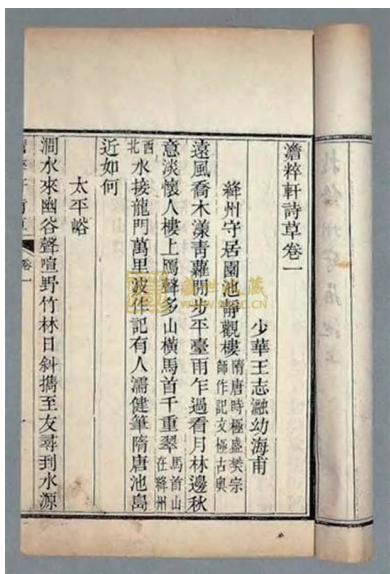 澹粹軒詩草卷一
少華王志瀜幼海甫
絳州守居園池靜觀樓隋唐時極盛樊宗師作記文極古奧
遠風喬木漾青蘿閒步平臺雨乍過看月林邊秋
意淡懷人樓上鴈聲多山橫馬首千重翠馬首山在絳州
西北水接龍門萬里波作記有人濡健筆隋唐池島
近如何
太平峪
澗水來幽谷聲喧野竹林日斜攜至友尋到水源
卷一